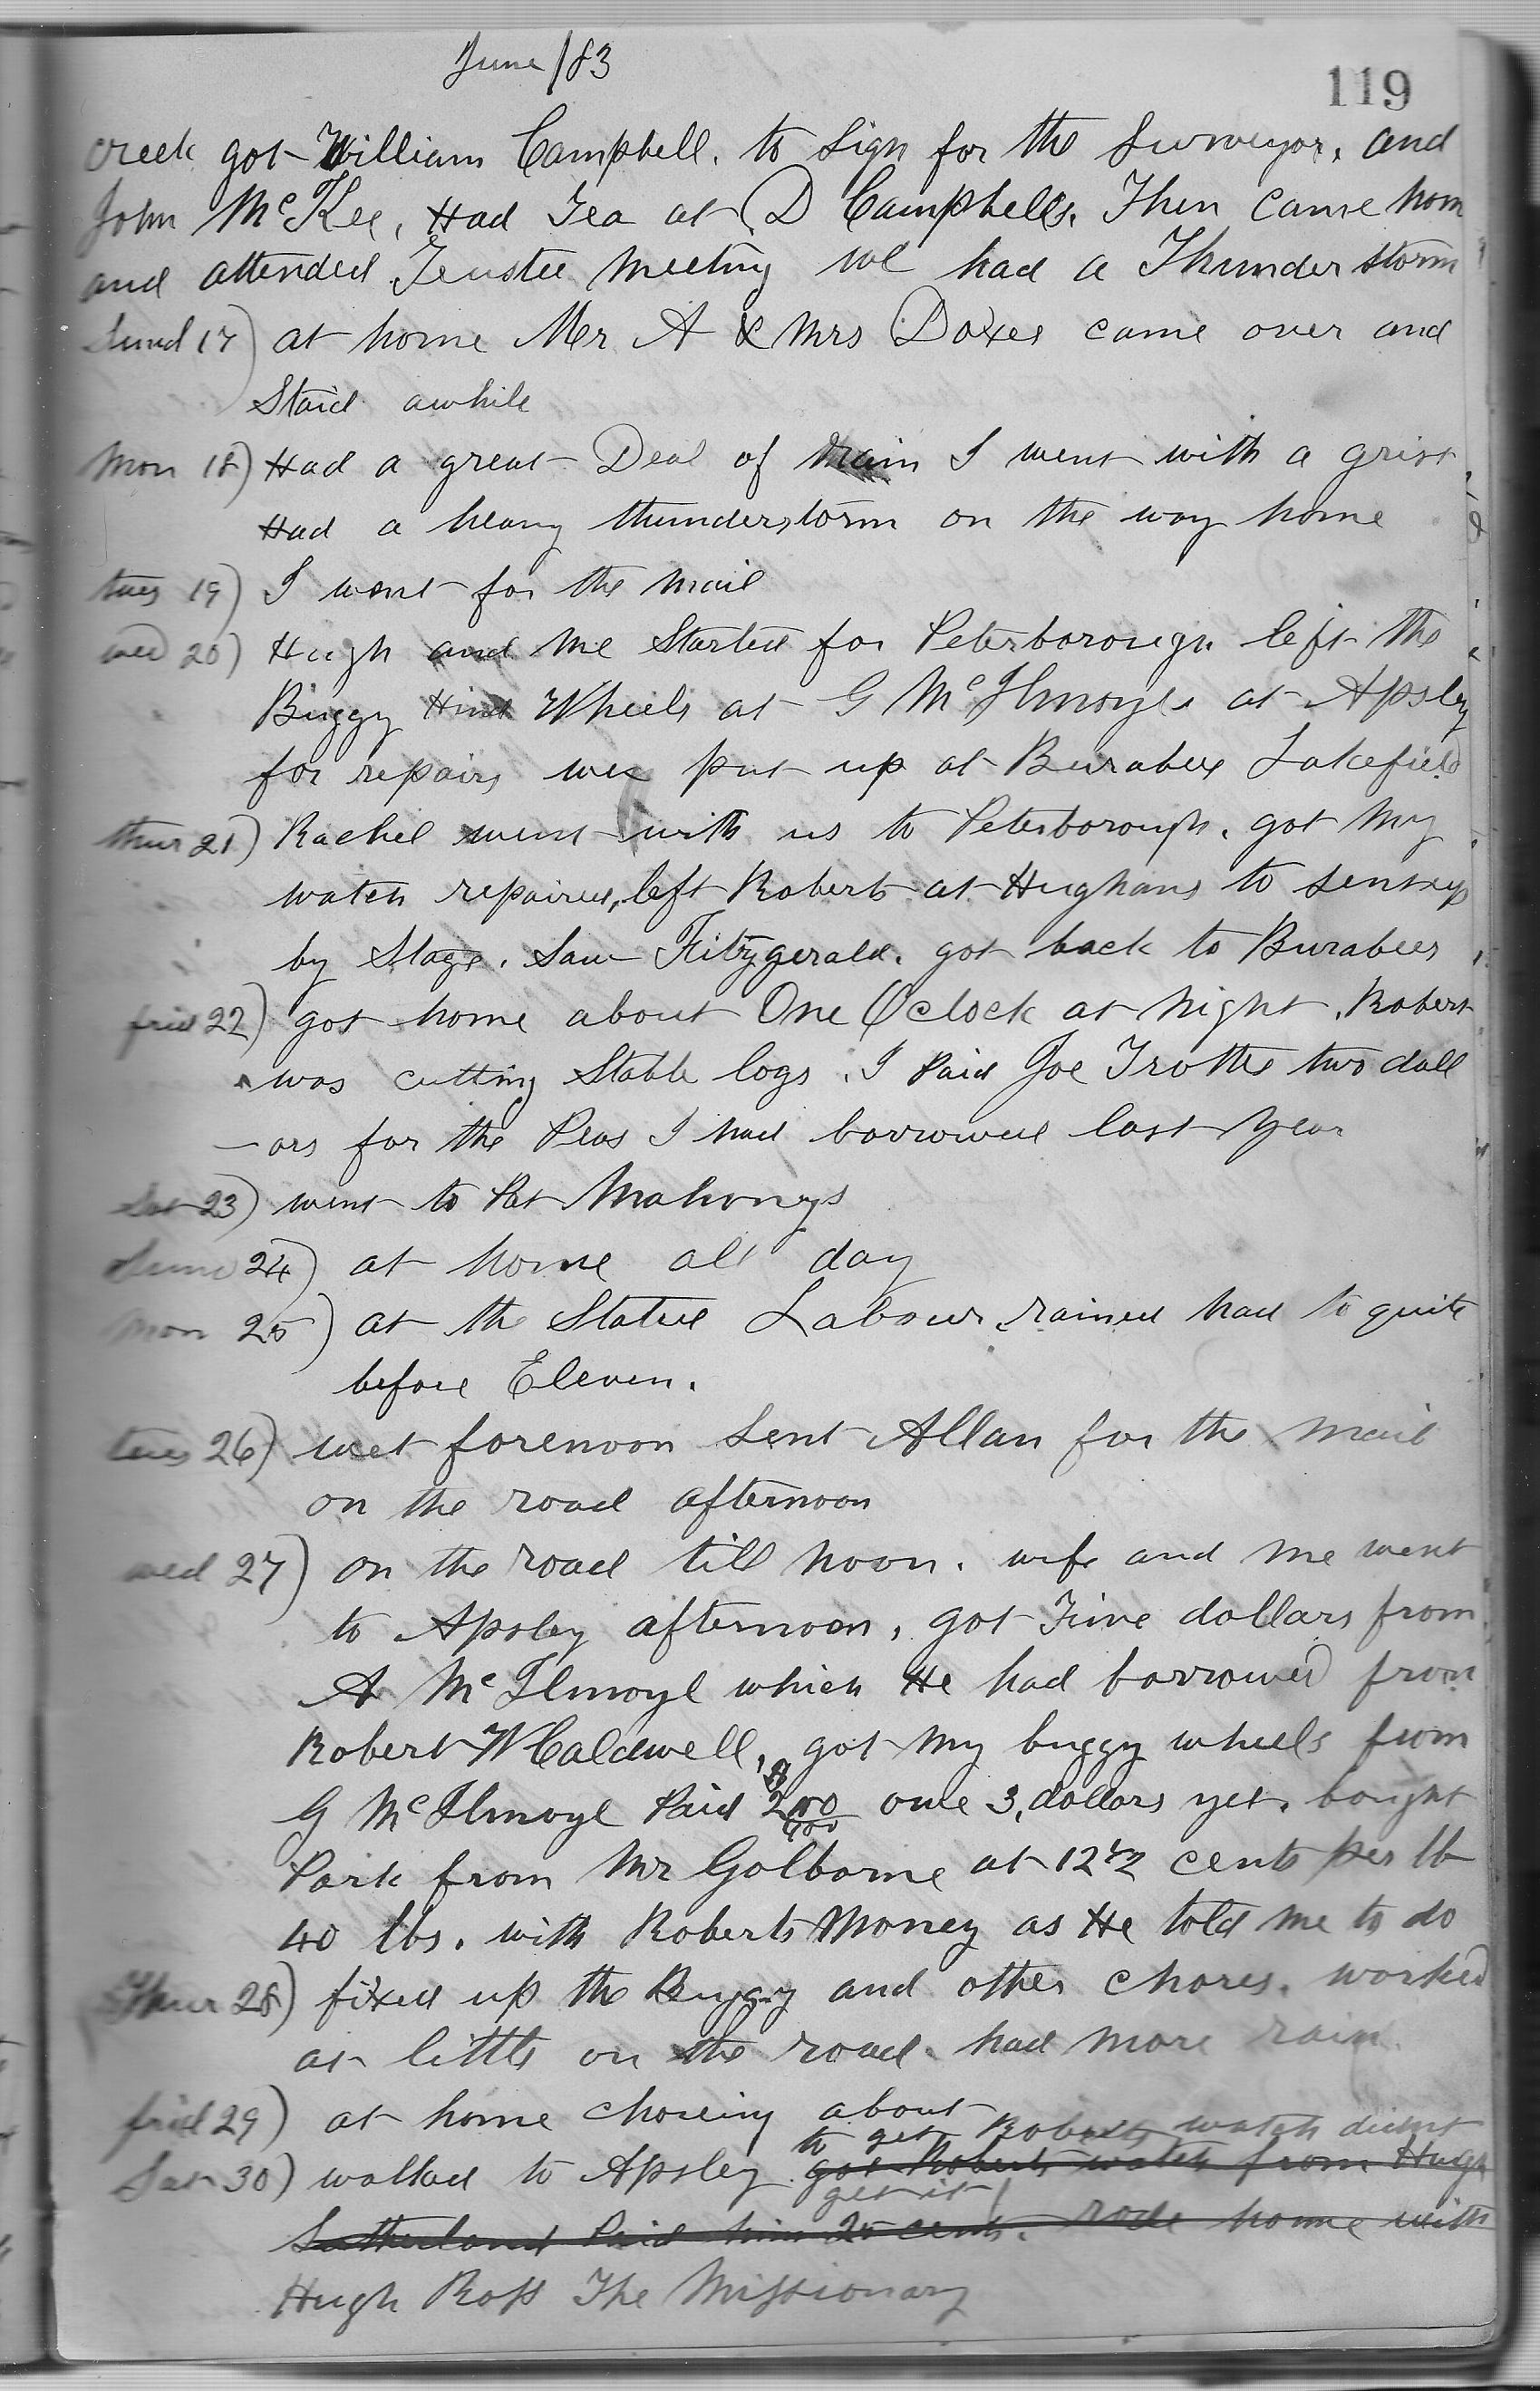 June /83
119
creek got William Campbell. to Sign for the Surveyor. and
John McKee, Had Tea at D Campbells. Then Came hom
and attended Trustee Meeting we had a Thunder storm
Sund 17) at home Mr A & Mrs Doxee came over and
Staid awhile
Mon 18) Had a great Deal of Rain I went with a grist
Had a heavy thunderstorm on the way home
tues 19) I went for the Mail
wed 20) Hugh and Me Started for Peterborough left the
Buggy Hind Wheels at G McIlmoyls at Apsley
for repairs we put up at Burabee Lakefield
thur 21) Rachel went with us to Peterborough. got My
watch repaired, left Roberts at Hughans to send up
by Stage. Saw Fitzgerald. got back to Burabees
frid 22) got home about One OClock at Night. Robert
was cutting Stable logs. I Paid Joe Trotter two doll
-ars for the Peas I had borrowed last Year
Sat 23) went to Pat Mahonys
Sund 24) at home all day
Mon 25) at the Statue Labour. rained had to quite
before Eleven.
tues 26) wet forenoon Sent Allan for the Mail
on the road afternoon
wed 27) on the road till Noon. wife and Me went
to Apsley afternoon, got Five dollars from
A McIlmoyl which He had borrowed from
Robert W Caldwell, got My buggy wheels from
G McIlmoyl Paid $2 owe 3, dollars yet. bought
Pork from Mr Golborne at 12 1/2 cents per lb
40 lbs. with Roberts Money as He told Me to do
Thur 28) fixed up the Buggy and other Chores. worked
a little on the road. had More rain.
frid 29) at home choreing about
to get Roberts watch didnt
Sat 30) walked to Apsley got Roberts watch from Hugh
get it
Sutherland Paid him 25 cents. rode home with
Hugh Ross The Missionary